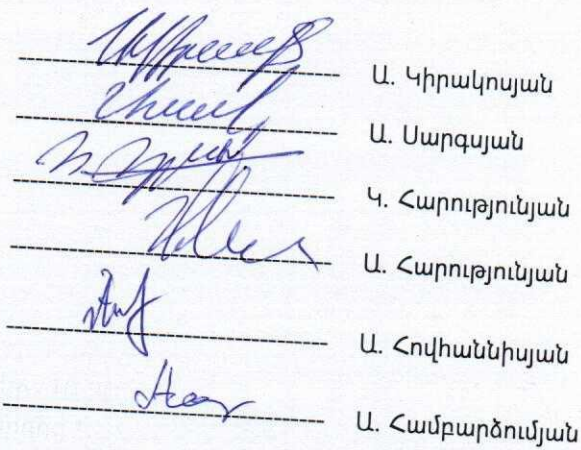 Ա. Կիրակոսյան
Ա. Սարգսյան
Կ. Հարությունյան
Ա. Հարությունյան
Ա. Հովհաննիսյան
Ա. Համբարձումյան